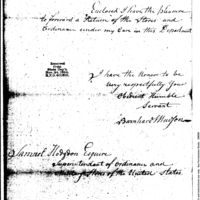 Enclosed I have the pleasure
to forward a Return of the Stores and
Ordnance under my Care in this Department
I have the Honor to be
very respectfully Your
Obedient Humble
Servant
Samuel Hodgdon Esquire
Superintendant of Ordnance and
Military Stores of the United States